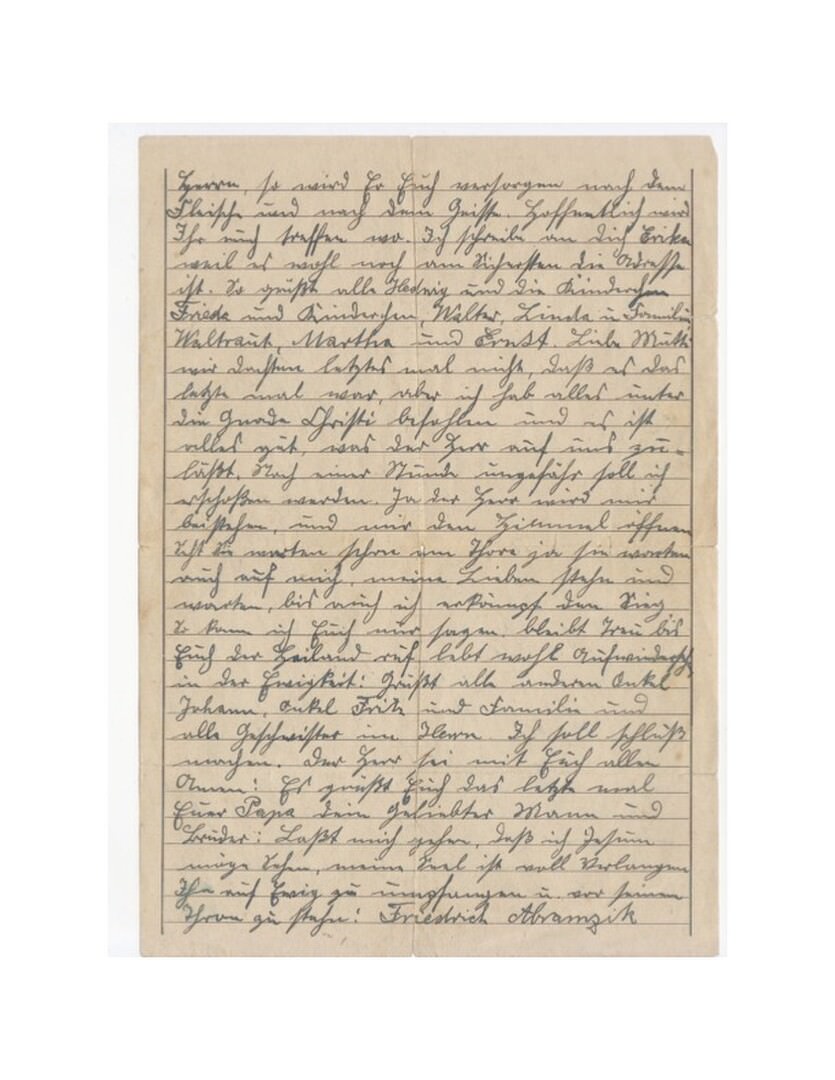 Herrn, so wird Er Euch versorgen nach dem
Fleische und nach dem Geiste. Hoffentlich wird
Ihr euch treffen wo. Ich schreibe an Dich Erika
weil es wohl noch am Sichersten die Adresse
ist. So grüßt alle Hedwig und die Kinderchen
Frieda und Kinderchen, Walter, Linda u Familie
Waltraut, Martha und Ernst. Liebe Mutti
wir dachten letztes mal nicht, daß es das
letzte mal war, aber ich hab alles unter
die Gnade Christi befohlen und es ist
alles gut, was der Herr auf uns zu=
läßt. Noch einer Stunde ungefähr soll ich
erschoßen werden. Ja der Herr wird mir
beistehen, und mir den Himmel öffnen
Seht Sie warten schon am Thore ja sie warten
auch auf mich, meine Lieben stehn und
warten, bis auch ich erkämpf den Sieg.
So kann ich Euch nur sagen: bleibt Treu bis
Euch der Heiland ruf lebt wohl Aufwiedersehn
in der Ewigkeit! Grüßt alle anderen Onkel
Johann, Onkel Fritz und Familie und
alle Geschwister im Herrn. Ich soll schluß
machen. Der Herr sei mit Euch allen
Amen! Es grüßt Euch das letzte mal
Euer Papa dein Geliebter Mann und
Bruder: Laßt mich gehen, daß ich Jesum
möge Sehen, meine Seel ist voll Verlangen
Ihn auf Ewig zu umpfangen u. vor seinem
Thron zu stehn! Friedrich Abramzik